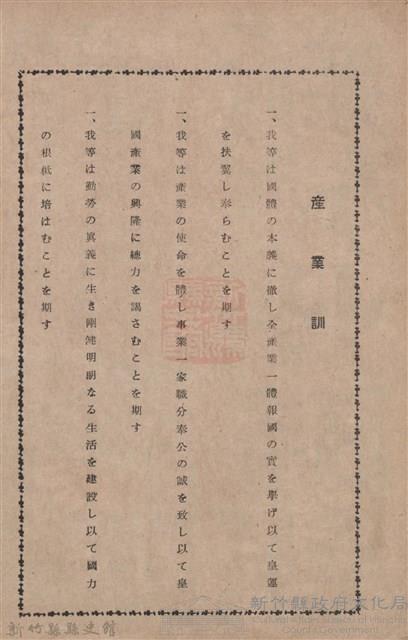 産業訓
一、我等は國體の本義に徹し全產業一體報國の實を擧げ以て皇運
を扶翼し奉らむことを期す
一、我等は產業の使命を體し事業一家職分奉公の誠を致し以て皇
國產業の興隆に總力を竭さむことを期す
一、我等は勤勞の眞義に生き剛健明朗なる生活を建設し以て國力
の根柢に培はむことを期す
新竹縣政府文化局
Cultural Affairs Bureau of Hsinchu
County Government
新竹縣縣史館